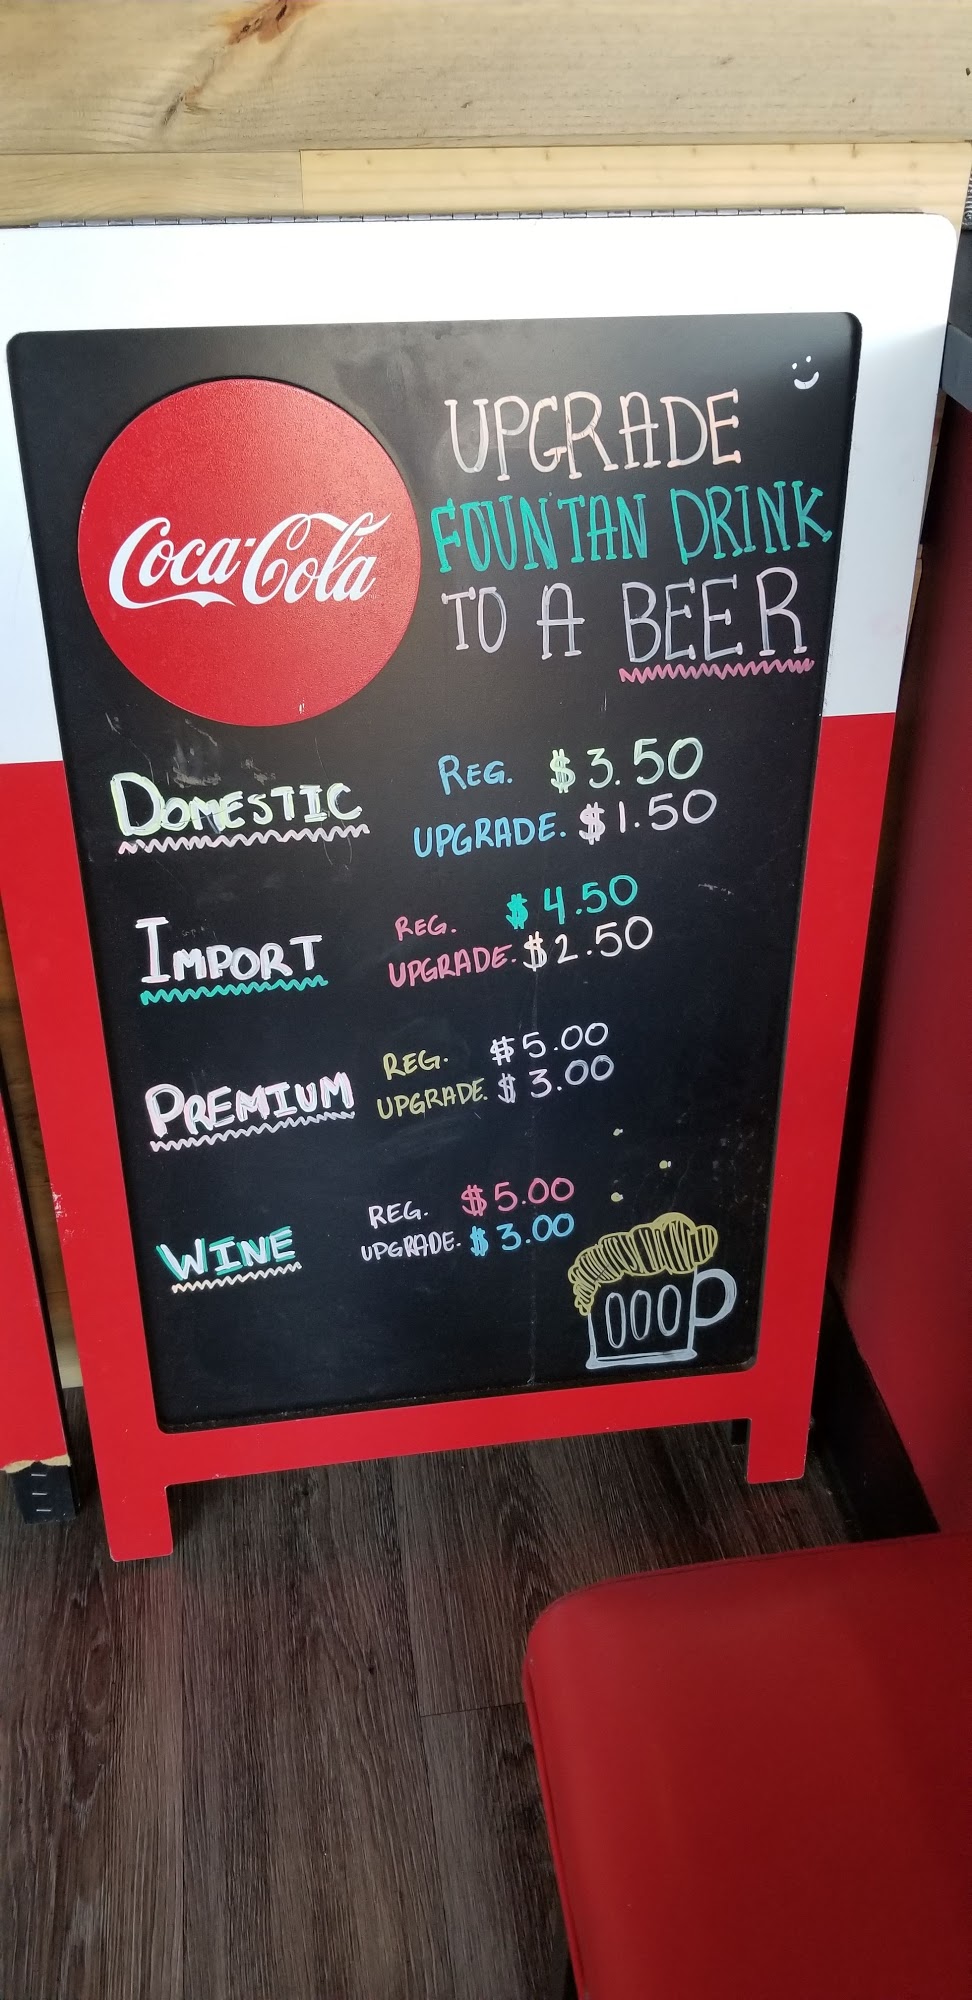 Coca-Cola
UPGRADE
FOUNTAN DRINK
TO A BEER
DOMESTIC
REG. $3.50
UPGRADE. $1.50
IMPORT
REG. $4.50
UPGRADE. $2.50
PREMIUM
REG. $5.00
UPGRADE. $3.00
WINE
REG. $5.00
UPGRADE. $3.00